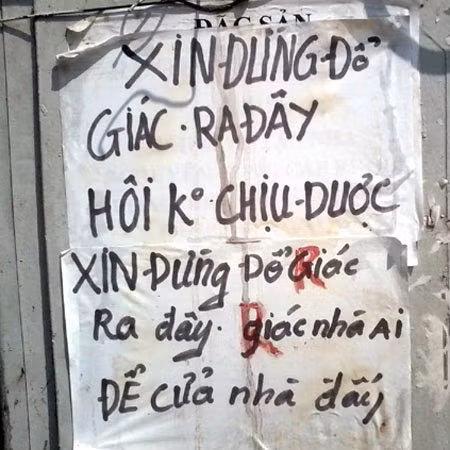 ĐẶC SẢN
XIN-ĐỪNG-ĐỔ
GIÁC·RA ĐÂY
HÔI Kº CHỊU-DƯỢC
XIN-ĐỪNG ĐỔ Giác
Ra đây· giác nhà Ai
ĐỂ CỬA nhà đấy